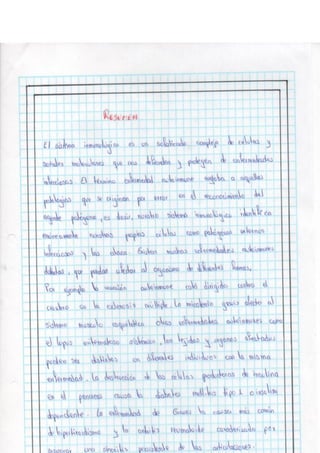 RESUMEN
El sistema inmunológico es un sofisticado complejo de células y
señales moleculares que nos defienden y protegen de enfermedades
infecciosas El término enfermedad autoinmune engloba a aquellas
patologías que se originan por error en el reconocimiento del
agente patógeno, es decir, nuestro sistema inmunológico identifica
erróneamente nuestras propias células como patógenos externos
infecciosos y las ataca. Existen muchas enfermedades autoinmunes
que pueden afectar al organismo de diferentes formas,
Por ejemplo la reacción autoinmune está dirigida contra el
cerebro en la esclerosis múltiple. La miastenia gravis afecta al
sistema musculo esquelético otras enfermedades autoinmunes como
el lupus eritematoso sistémico, los tejidos y órganos afectados
pueden ser distintos en diferentes individuos con la misma
enfermedad. La destrucción de las células productoras de insulina
en el páncreas causa la diabetes mellitus tipo 1 o insulino
dependiente. La enfermedad de Graves la causa más común
de hipertiroidismo y la artritis reumatoide caracterizada por
una sinovitis persistente de las articulaciones.